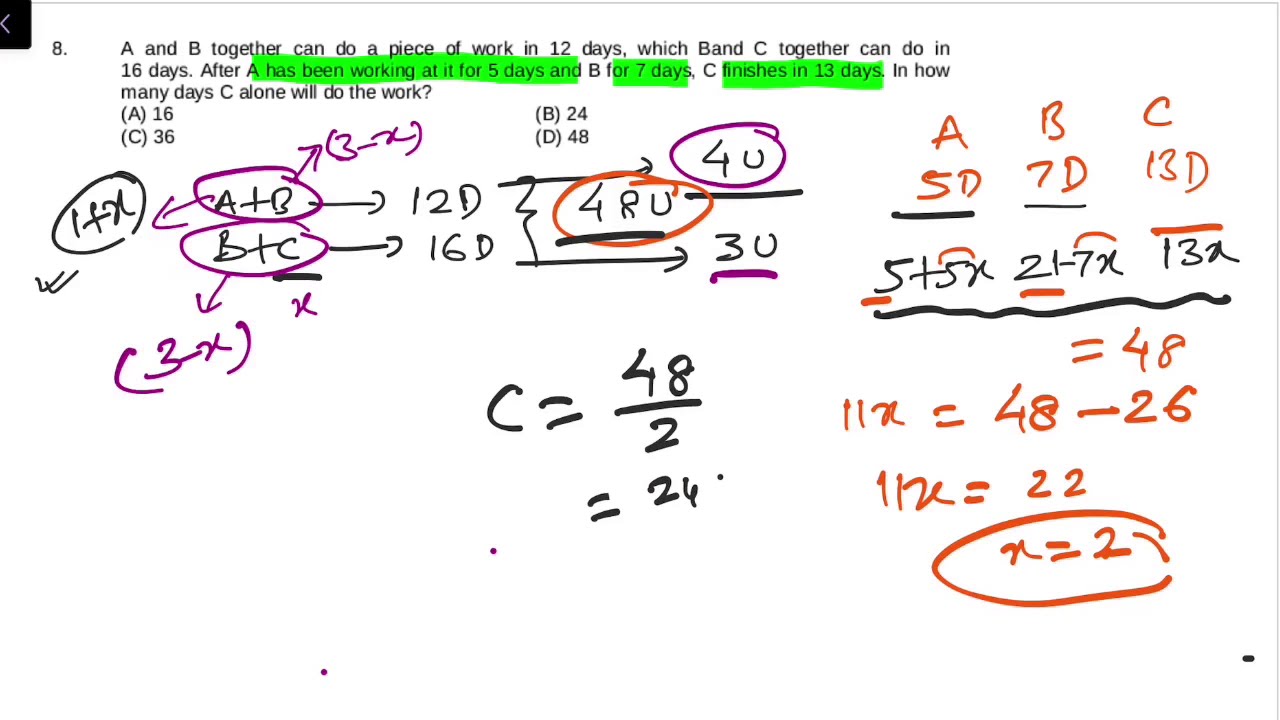 8. A and B together can do a piece of work in 12 days, which Band C together can do in
16 days. After A has been working at it for 5 days and B for 7 days, C finishes in 13 days. In how
many days C alone will do the work?
(A) 16 (B) 24
(C) 36 (D) 48
(3-x)
1+x A+B → 12D 48U 4U
B+C → 16D 3U
x
(3-x)
A B C
5D 7D 13D
5+5x 21-7x 13x
= 48
11x = 48 - 26
11x = 22
x = 2
C = 48/2
= 24